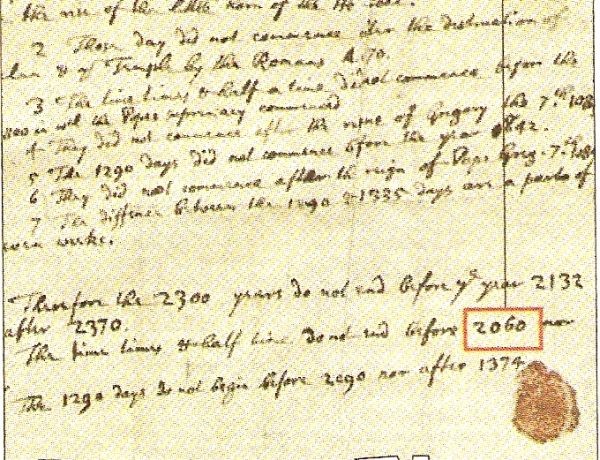 the rise of the little horn of the He Goat.
2 Those day did not commence after the destruction of
& yᵉ Temple by the Romans A. 70.
3 The time times & half a time did not commence before the
800 in wch the Popes supremacy commenced
4 They did not commence after the reigne of Gregory the 7.th 108
5 The 1290 days did not commence before the year 842.
6 They did not commence after the reign of Pope Greg. 7.th 108
7 The diffence between the 1290 & 1335 days are a parts of
weeks.
Therefore the 2300 years do not end before yᵉ year 2132
after 2370.
The time times & half time do not end before 2060 nor
The 1290 days do not begin before 2090 nor after 1374